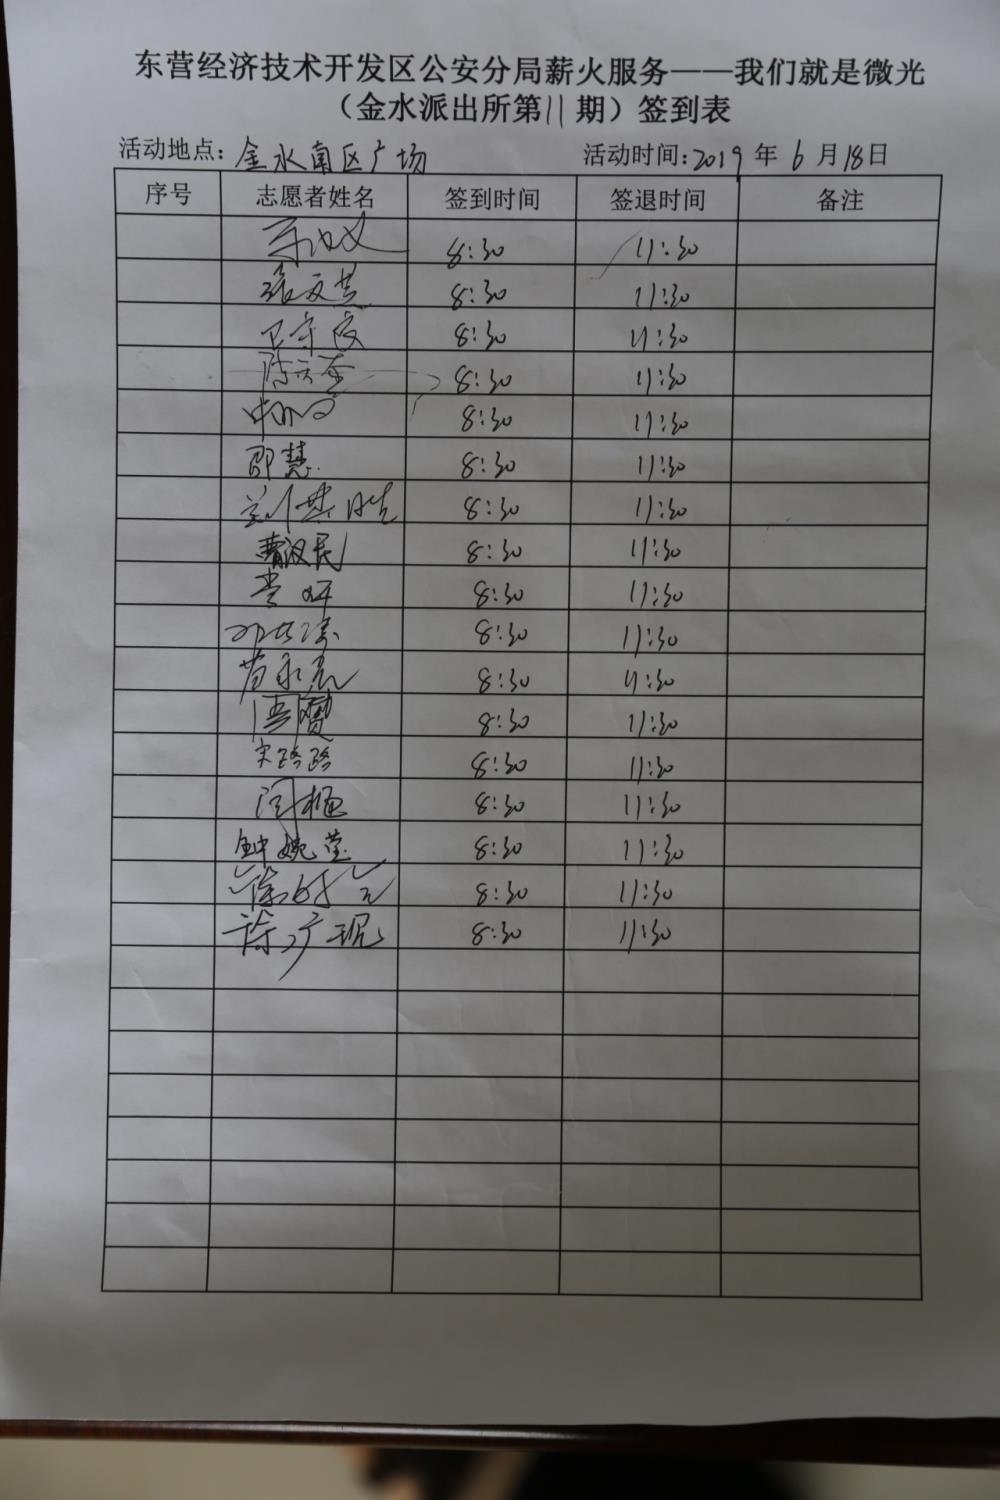 东营经济技术开发区公安分局薪火服务——我们就是微光
（金水派出所第11期）签到表
活动地点：金水南区广场 活动时间：2019年6月18日
序号 志愿者姓名 签到时间 签退时间 备注
8:30 11:30
张文 8:30 11:30
8:30 11:30
陈 8:30 11:30
8:30 11:30
邵慧 8:30 11:30
兰 胜 8:30 11:30
曹汉民 8:30 11:30
8:30 11:30
8:30 11:30
苗永 8:30 11:30
8:30 11:30
宋路路 8:30 11:30
闫 8:30 11:30
钟婉莹 8:30 11:30
徐 8:30 11:30
徐广 8:30 11:30